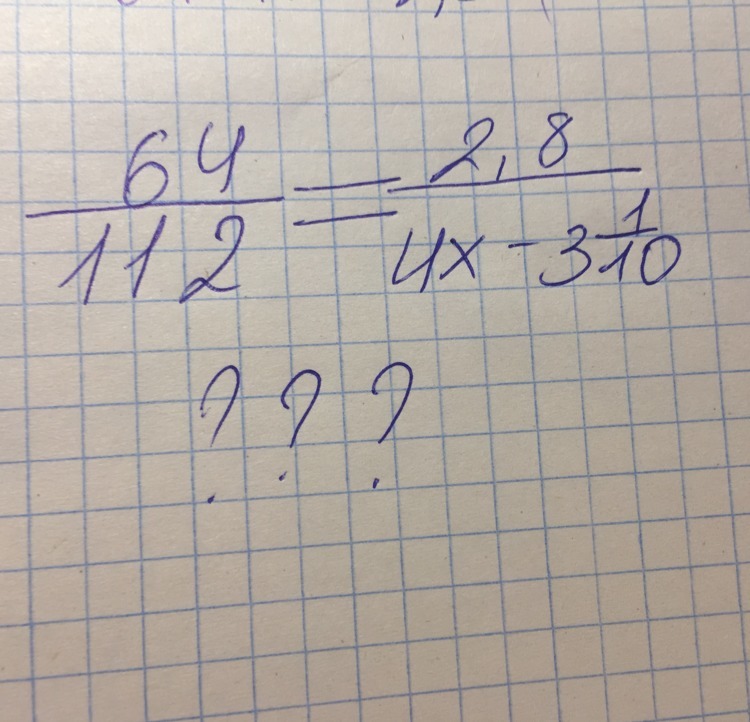 64/112 = 2,8/4x - 3 1/10
? ? ?